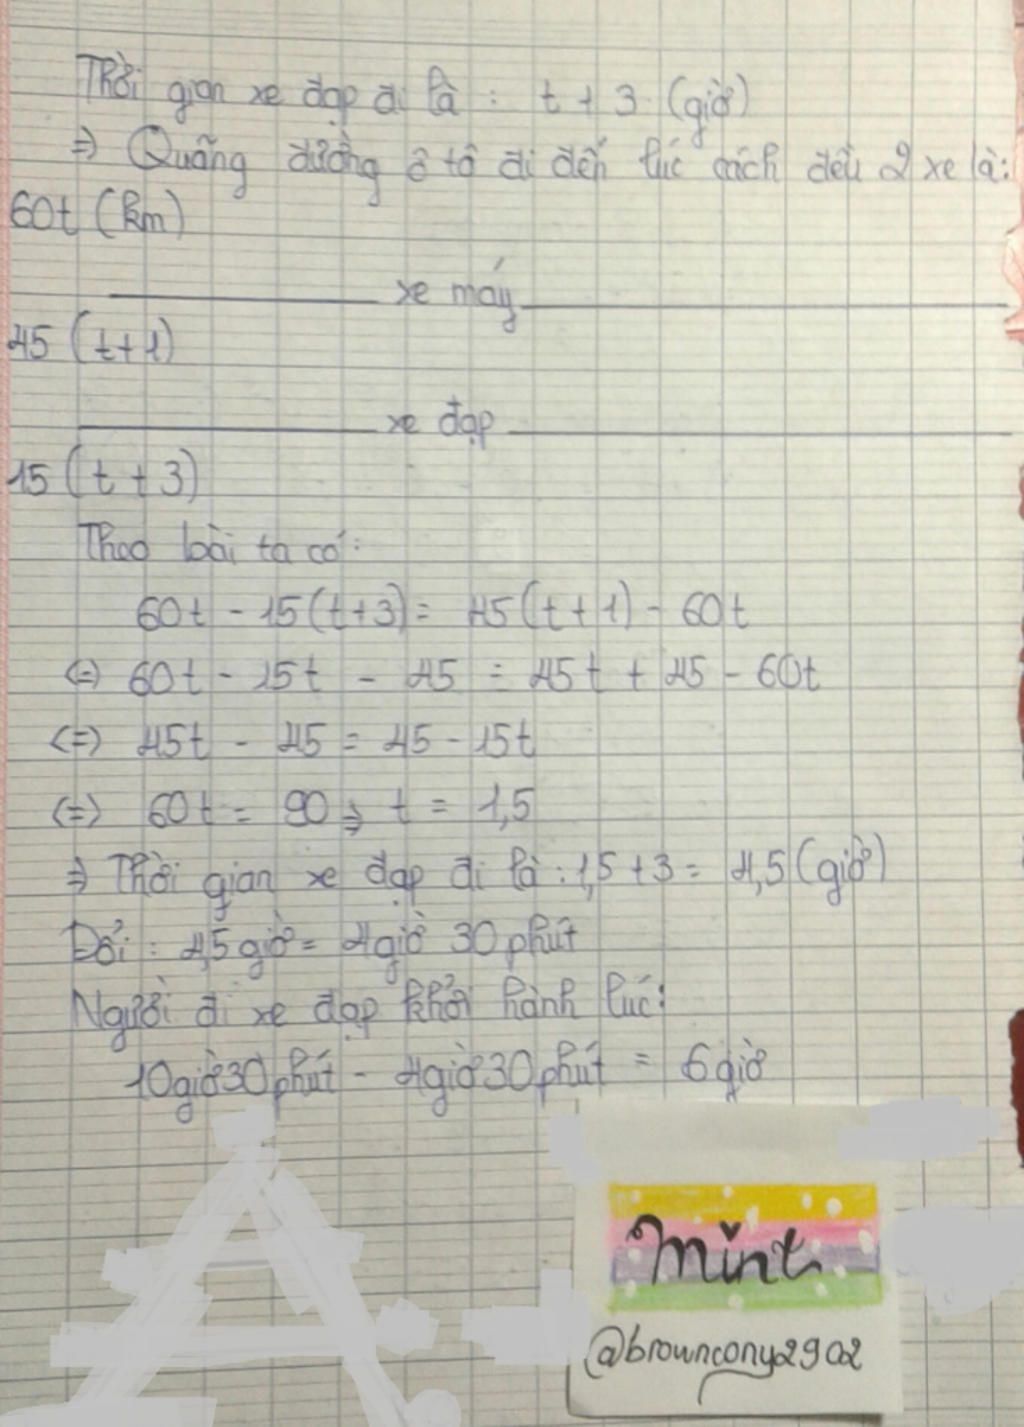 Thời gian xe đạp đi là : t + 3 (giờ)
=> Quãng đường ô tô đi đến lúc cách đều 2 xe là:
60t (km)
xe máy
45 (t+1)
xe đạp
15 (t + 3)
Theo bài ta có:
60t - 15(t+3) = 45(t+1) - 60t
<=> 60t - 15t - 45 = 45t + 45 - 60t
<=> 45t - 45 = 45 - 15t
<=> 60t = 90 => t = 1,5
=> Thời gian xe đạp đi là : 1,5 + 3 = 4,5 (giờ)
Đổi : 4,5 giờ = 4 giờ 30 phút
Người đi xe đạp khởi hành lúc:
10 giờ 30 phút - 4 giờ 30 phút = 6 giờ
mint
@browncony2902